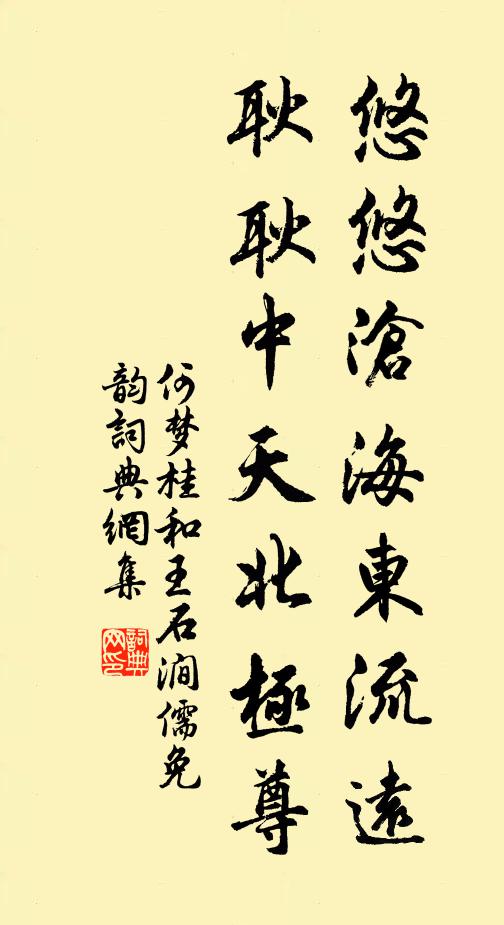 悠悠滄海東流遠
耿耿中天北極尊
何梦桂和王石澗儒免
韵詞典網集
詞典网印